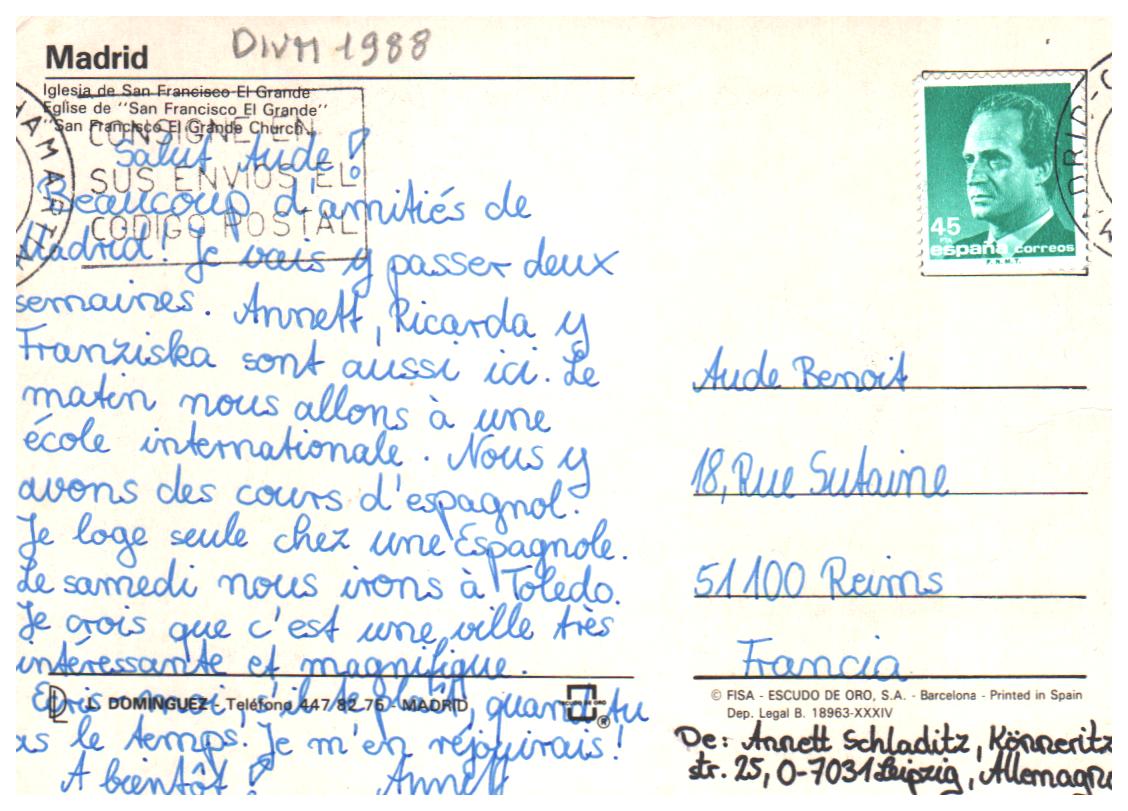 Madrid
DIVM 1988
Iglesia de San Francisco El Grande
Eglise de "San Francisco El Grande"
"San Francisco El Grande Church"
CONSIGNE EN
SUS ENVIOS EL
CODIGO POSTAL
Salut Aude!
Beaucoup d'amitiés de
Madrid! Je vais y passer deux
semaines. Annett, Ricarda y
Franziska sont aussi ici. Le
matin nous allons à une
école internationale. Nous y
avons des cours d'espagnol.
Je loge seule chez une Espagnole.
Le samedi nous irons à Toledo.
Je crois que c'est une ville très
intéressante et magnifique.
Ecris-moi, s'il te plaît, quand tu
as le temps. Je m'en réjouirais!
A bientôt! Annett
L. DOMINGUEZ - Teléfono 447 82 76 - MADRID
ESCUDO DE ORO
®
45
PTA
españa correos
F.N.M.T.
Aude Benoit
18, Rue Sutaine
51100 Reims
Francia
© FISA - ESCUDO DE ORO, S.A. - Barcelona - Printed in Spain
Dep. Legal B. 18963-XXXIV
De: Annett Schladitz, Könneritz
str. 25, O-7031 Leipzig, Allemagne